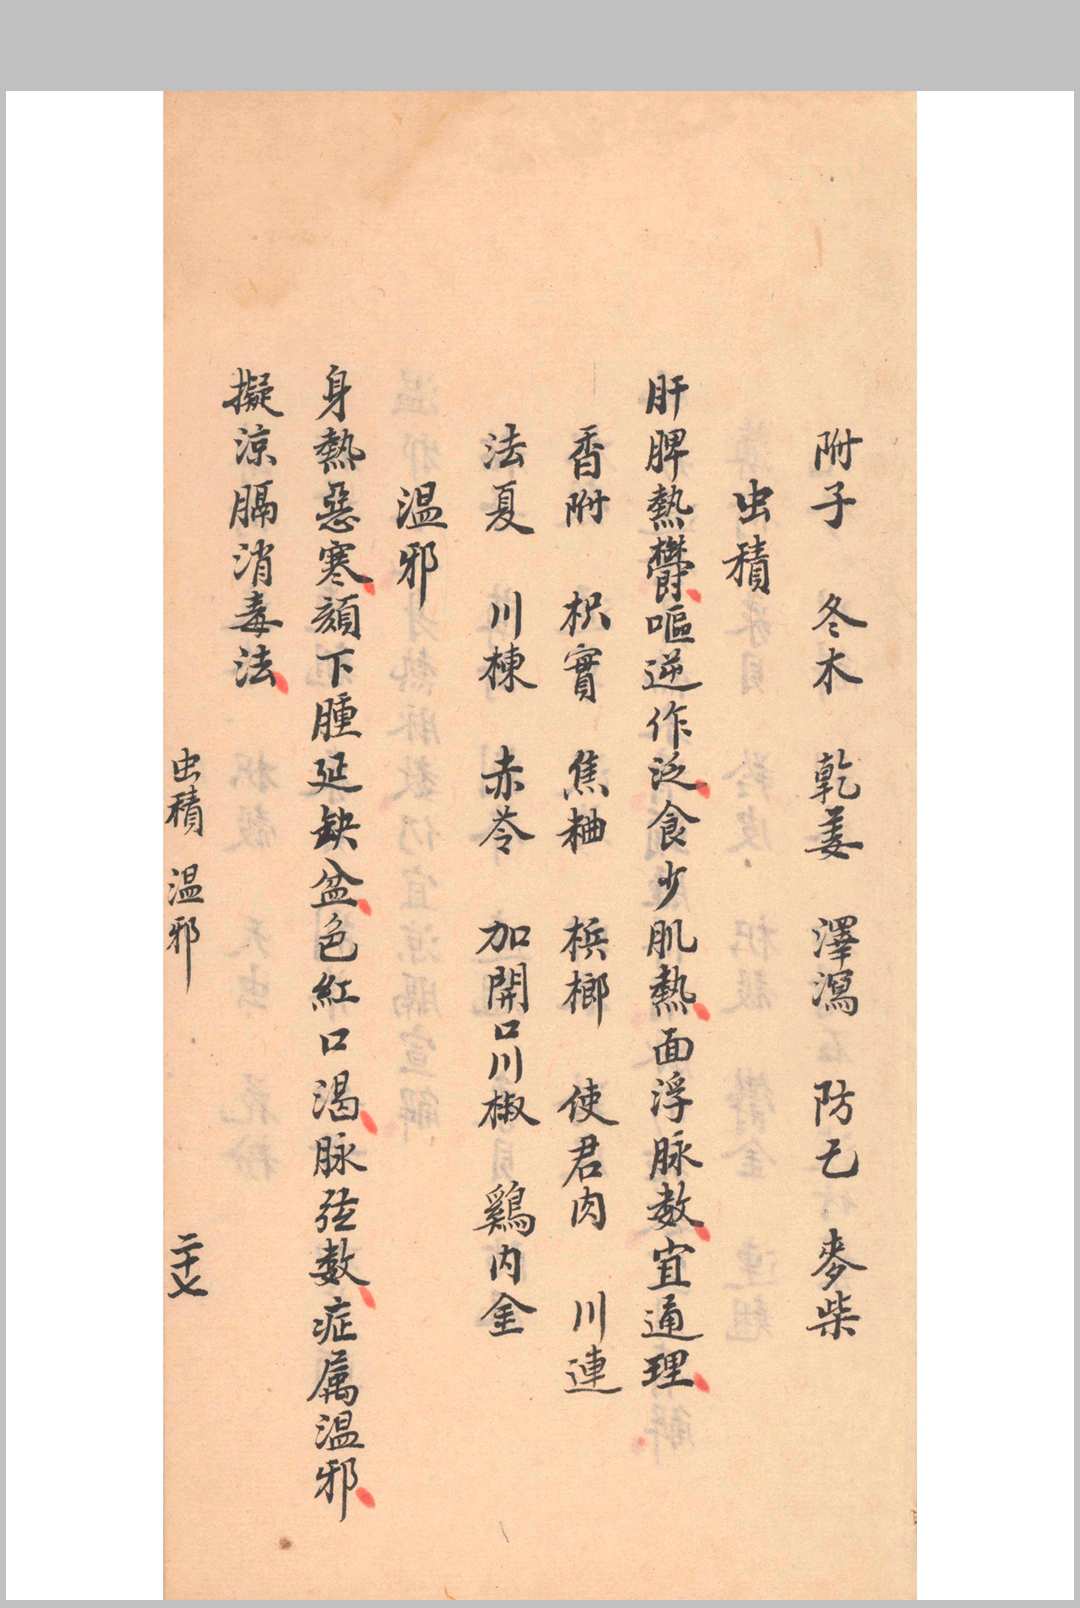 附子　冬木　乾姜　澤瀉　防己　麥柴
虫積
肝脾熱欝嘔逆作泛食少肌熱面浮脉数宜通理
香附　枳實　焦粬　梹榔　使君肉　川連
法夏　川楝　赤苓　加開口川椒　鷄内金
温邪
身熱惡寒頦下腫延缺盆色紅口渴脉弦数症属温邪
擬涼膈消毒法
虫積　温邪　二十七